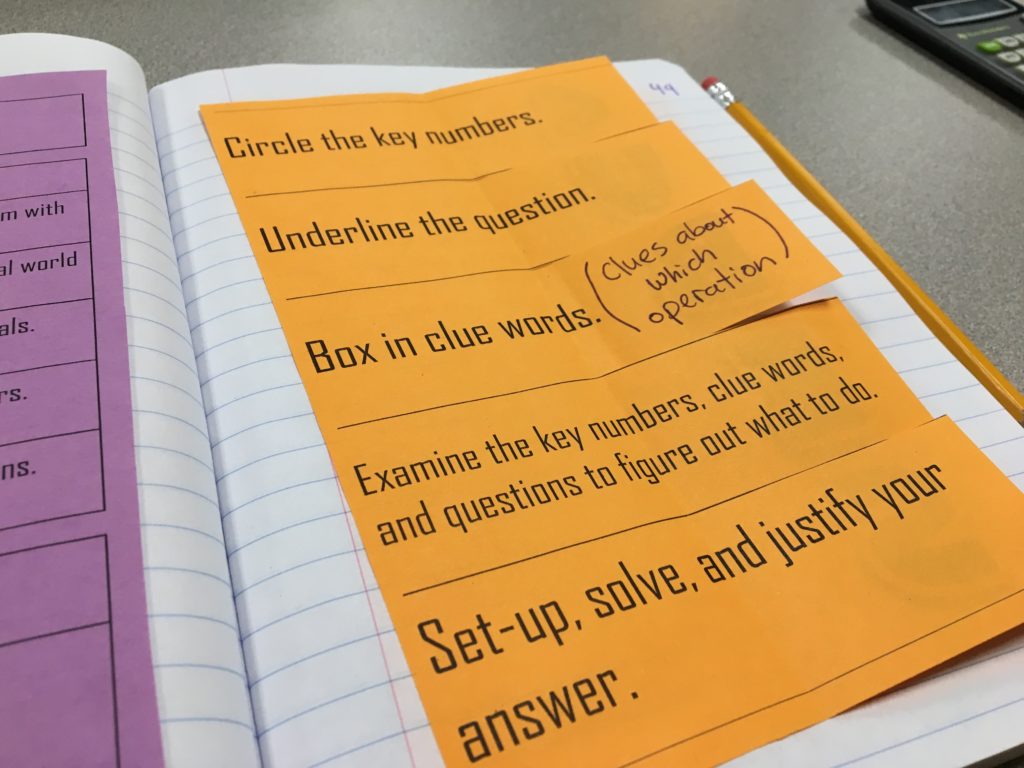 m with
al world
als.
rs.
ns.
44
Circle the key numbers.
Underline the question.
Box in clue words.
(clues about
which
operation)
Examine the key numbers, clue words,
and questions to figure out what to do.
Set-up, solve, and justify your
answer.